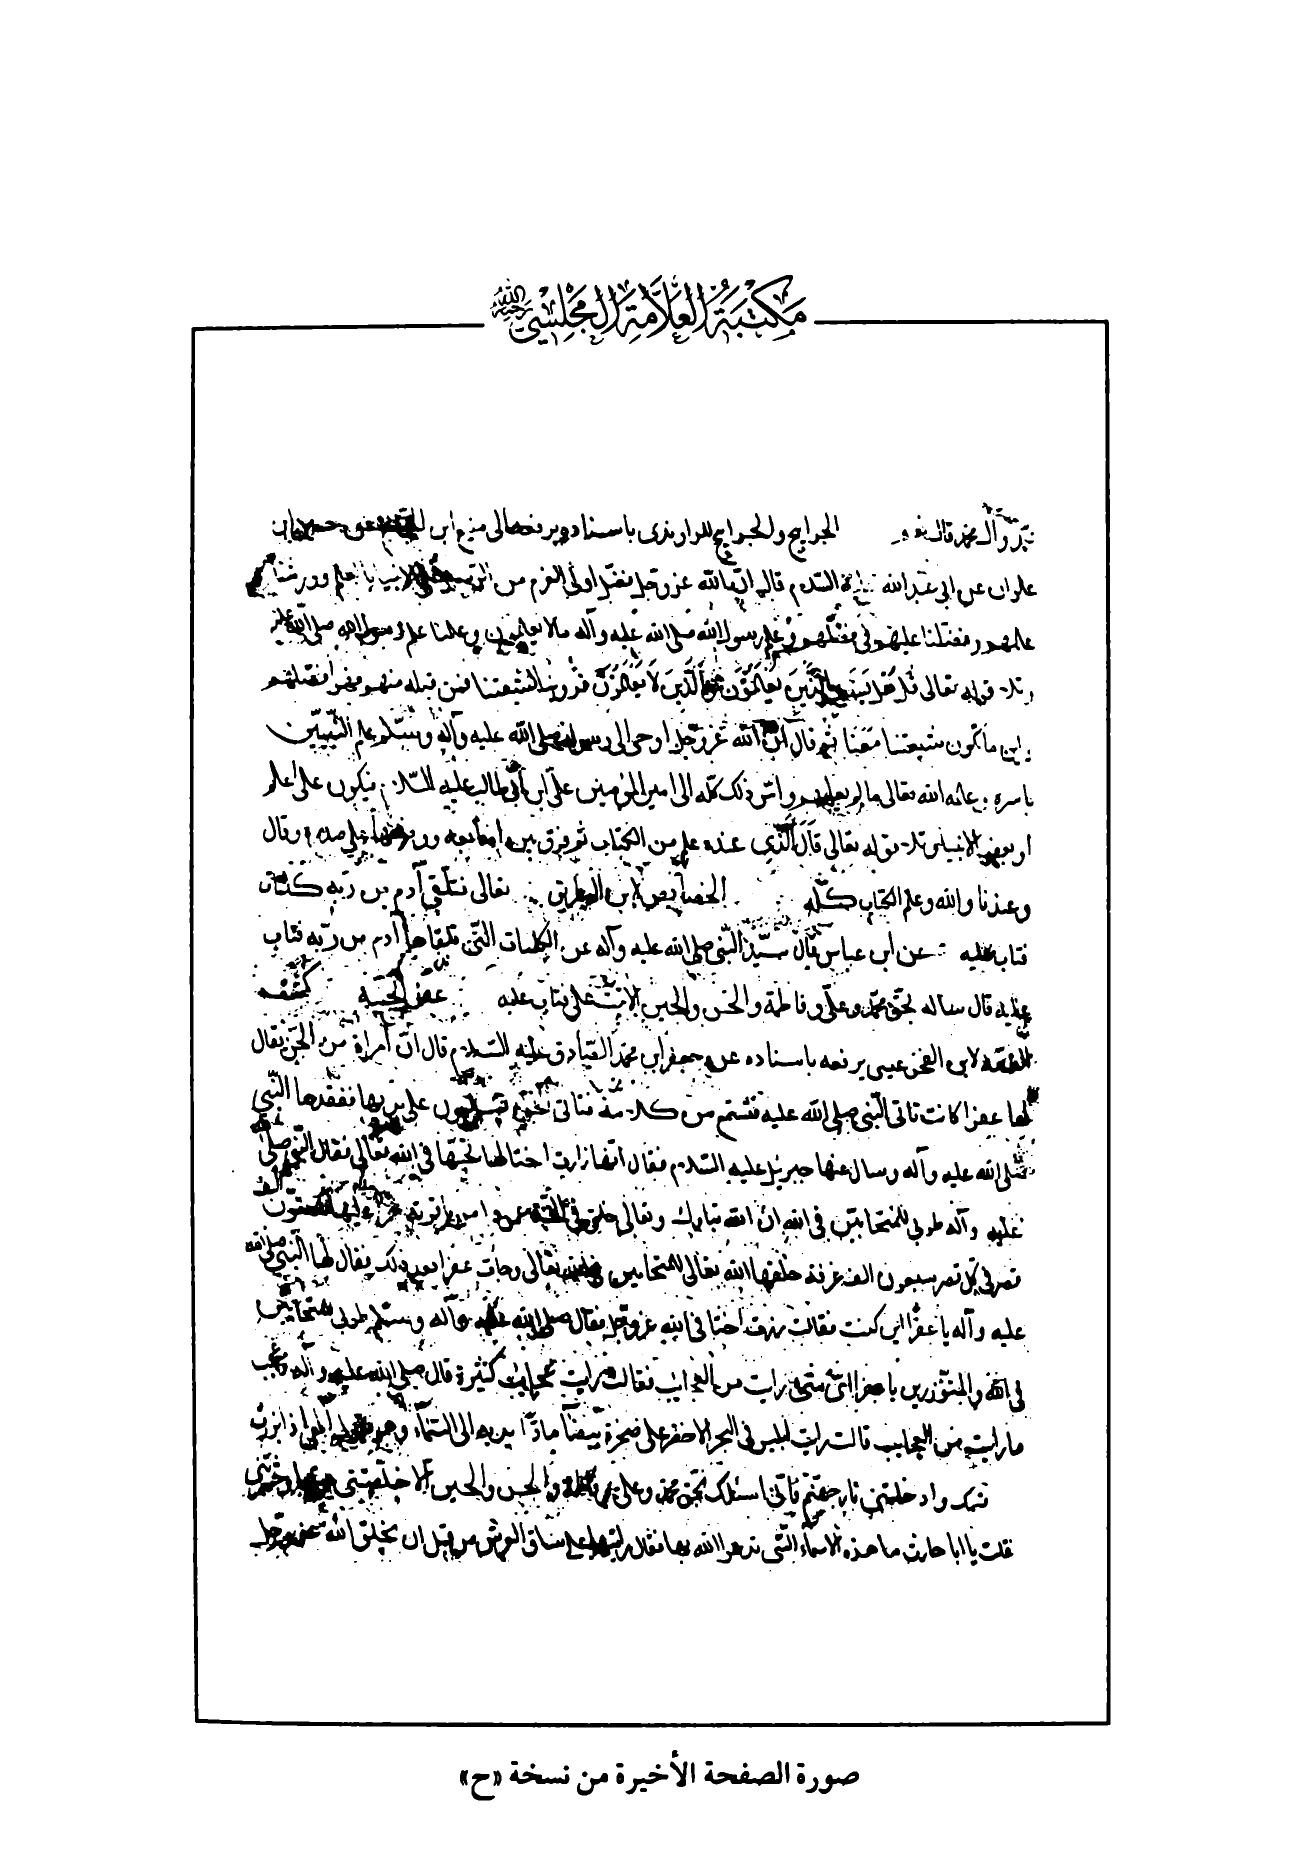 مكتبة العلامة المجلسي رحمه الله
وآل محمد قال الجرايح والجرايح للراوندي باسناده يرفعه الى منيع ابن
علوان عن ابي عبدالله السلام قال ان الله عز وجل فضل اولى العزم من الانبياء بالعلم وورثنا
علمهم وفضلنا عليهم في فضلهم وعلم رسول الله صلى الله عليه وآله مالا يعلمون وعلمنا علم رسول الله صلى الله عليه
قوله تعالى قل هل يستوي الذين يعلمون والذين لا يعلمون فروينا لشيعتنا فمن قبله منهم فهو افضلهم
واين ما نكون شيعتنا معنا ثم قال ان الله عز وجل اوحى الى رسوله صلى الله عليه وآله وسلم علم النبيين
باسره وعلمه الله تعالى مالم يعلمهم واسر ذلك كله الى امير المؤمنين علي ابن ابي طالب عليه السلام فيكون علي اعلم
او بعض الانبياء تلا قوله تعالى قال الذي عنده علم من الكتاب ثم فرق بين اصابعه ووضعها على صدره وقال
وعندنا والله وعلم الكتاب كله الخصايص لابن البطريق تعالى فتلقى آدم من ربه كلمات
فتاب عليه عن ابن عباس قال سئل النبي صلى الله عليه وآله عن الكلمات التي تلقاها آدم من ربه فتاب
عليه قال ساله بحق محمد وعلي وفاطمة والحسن والحسين الا تبت علي فتاب عليه عفر الجنية كشف
الغمة لابن الفخر عيسى يرفعه باسناده عن جعفر ابن محمد الصادق عليه السلام قال ان امراة من الجن يقال
لها عفرا كانت تاتي النبي صلى الله عليه فتسمع من كلامه فتاتي الجن فيسلمون على يديها ففقدها النبي
صلى الله عليه وآله وسال عنها جبريل عليه السلام فقال انها زارت اختا لها تحبها في الله تعالى فقال النبي صلى الله
عليه وآله طوبى للمتحابين في الله ان الله تبارك وتعالى خلق في الجنة عمودا من ياقوتة حمراء عليها سبعون الف
قصر في كل قصر سبعون الف غرفة خلقها الله تعالى للمتحابين في الله تعالى وجات عفرا بعد ذلك فقال لها النبي صلى الله
عليه وآله يا عفرا اين كنت فقالت زرت اختا في الله عز وجل فقال صلى الله عليه وآله وسلم طوبى للمتحابين
في الله والمتزورين يا عفرا اي شئ رايت من العجائب فقالت رايت عجايب كثيرة قال صلى الله عليه وآله واعجب
ما رايت من العجايب قالت رايت ابليس في البحر الاخضر على صخرة بيضاء مادا يديه الى السماء وهو يقول الهي اذا بررت
قسمك وادخلتني نار جهنم فاني اسئلك بحق محمد وعلي وفاطمة والحسن والحسين الا خلصتني منها وحشرتني
قلت يا ابا حارث ما هذه الاسماء التي تدعوا الله بها فقال رايتها على ساق العرش من قبل ان يخلق الله عز وجل
صورة الصفحة الأخيرة من نسخة «ح»